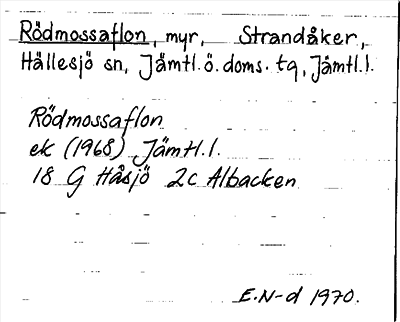 Rödmossaflon, myr, Strandåker,
Hällesjö sn, Jämtl.ö.doms.tg, Jämtl.l.
Rödmossaflon
ek (1968) Jämtl.l.
18 G Håsjö 2c Albacken
E.N-d 1970.